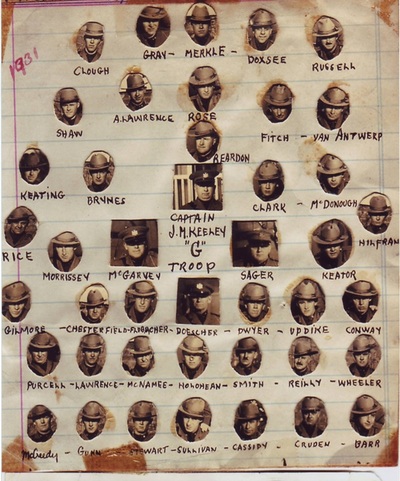 1931
CLOUGH GRAY - MERKLE - DOXSEE RUSSELL
SHAW A. LAWRENCE ROSE FITCH - VAN ANTWERP
REARDON
KEATING BRYNES CLARK - McDONOUGH
CAPTAIN
J. M. KEELEY
"G"
TROOP
RICE MORRISSEY McGARVEY SAGER KEATOR HILFRAN
GILMORE - CHESTERFIELD - - DOESCHER - DWYER - UPDIKE CONWAY
PURCELL - LAWRENCE - McNAMEE - HOLOHEAN - SMITH - REILLY - WHEELER
McGreedy - GUNN - STEWART - SULLIVAN - CASSIDY - CRUDEN - BARR